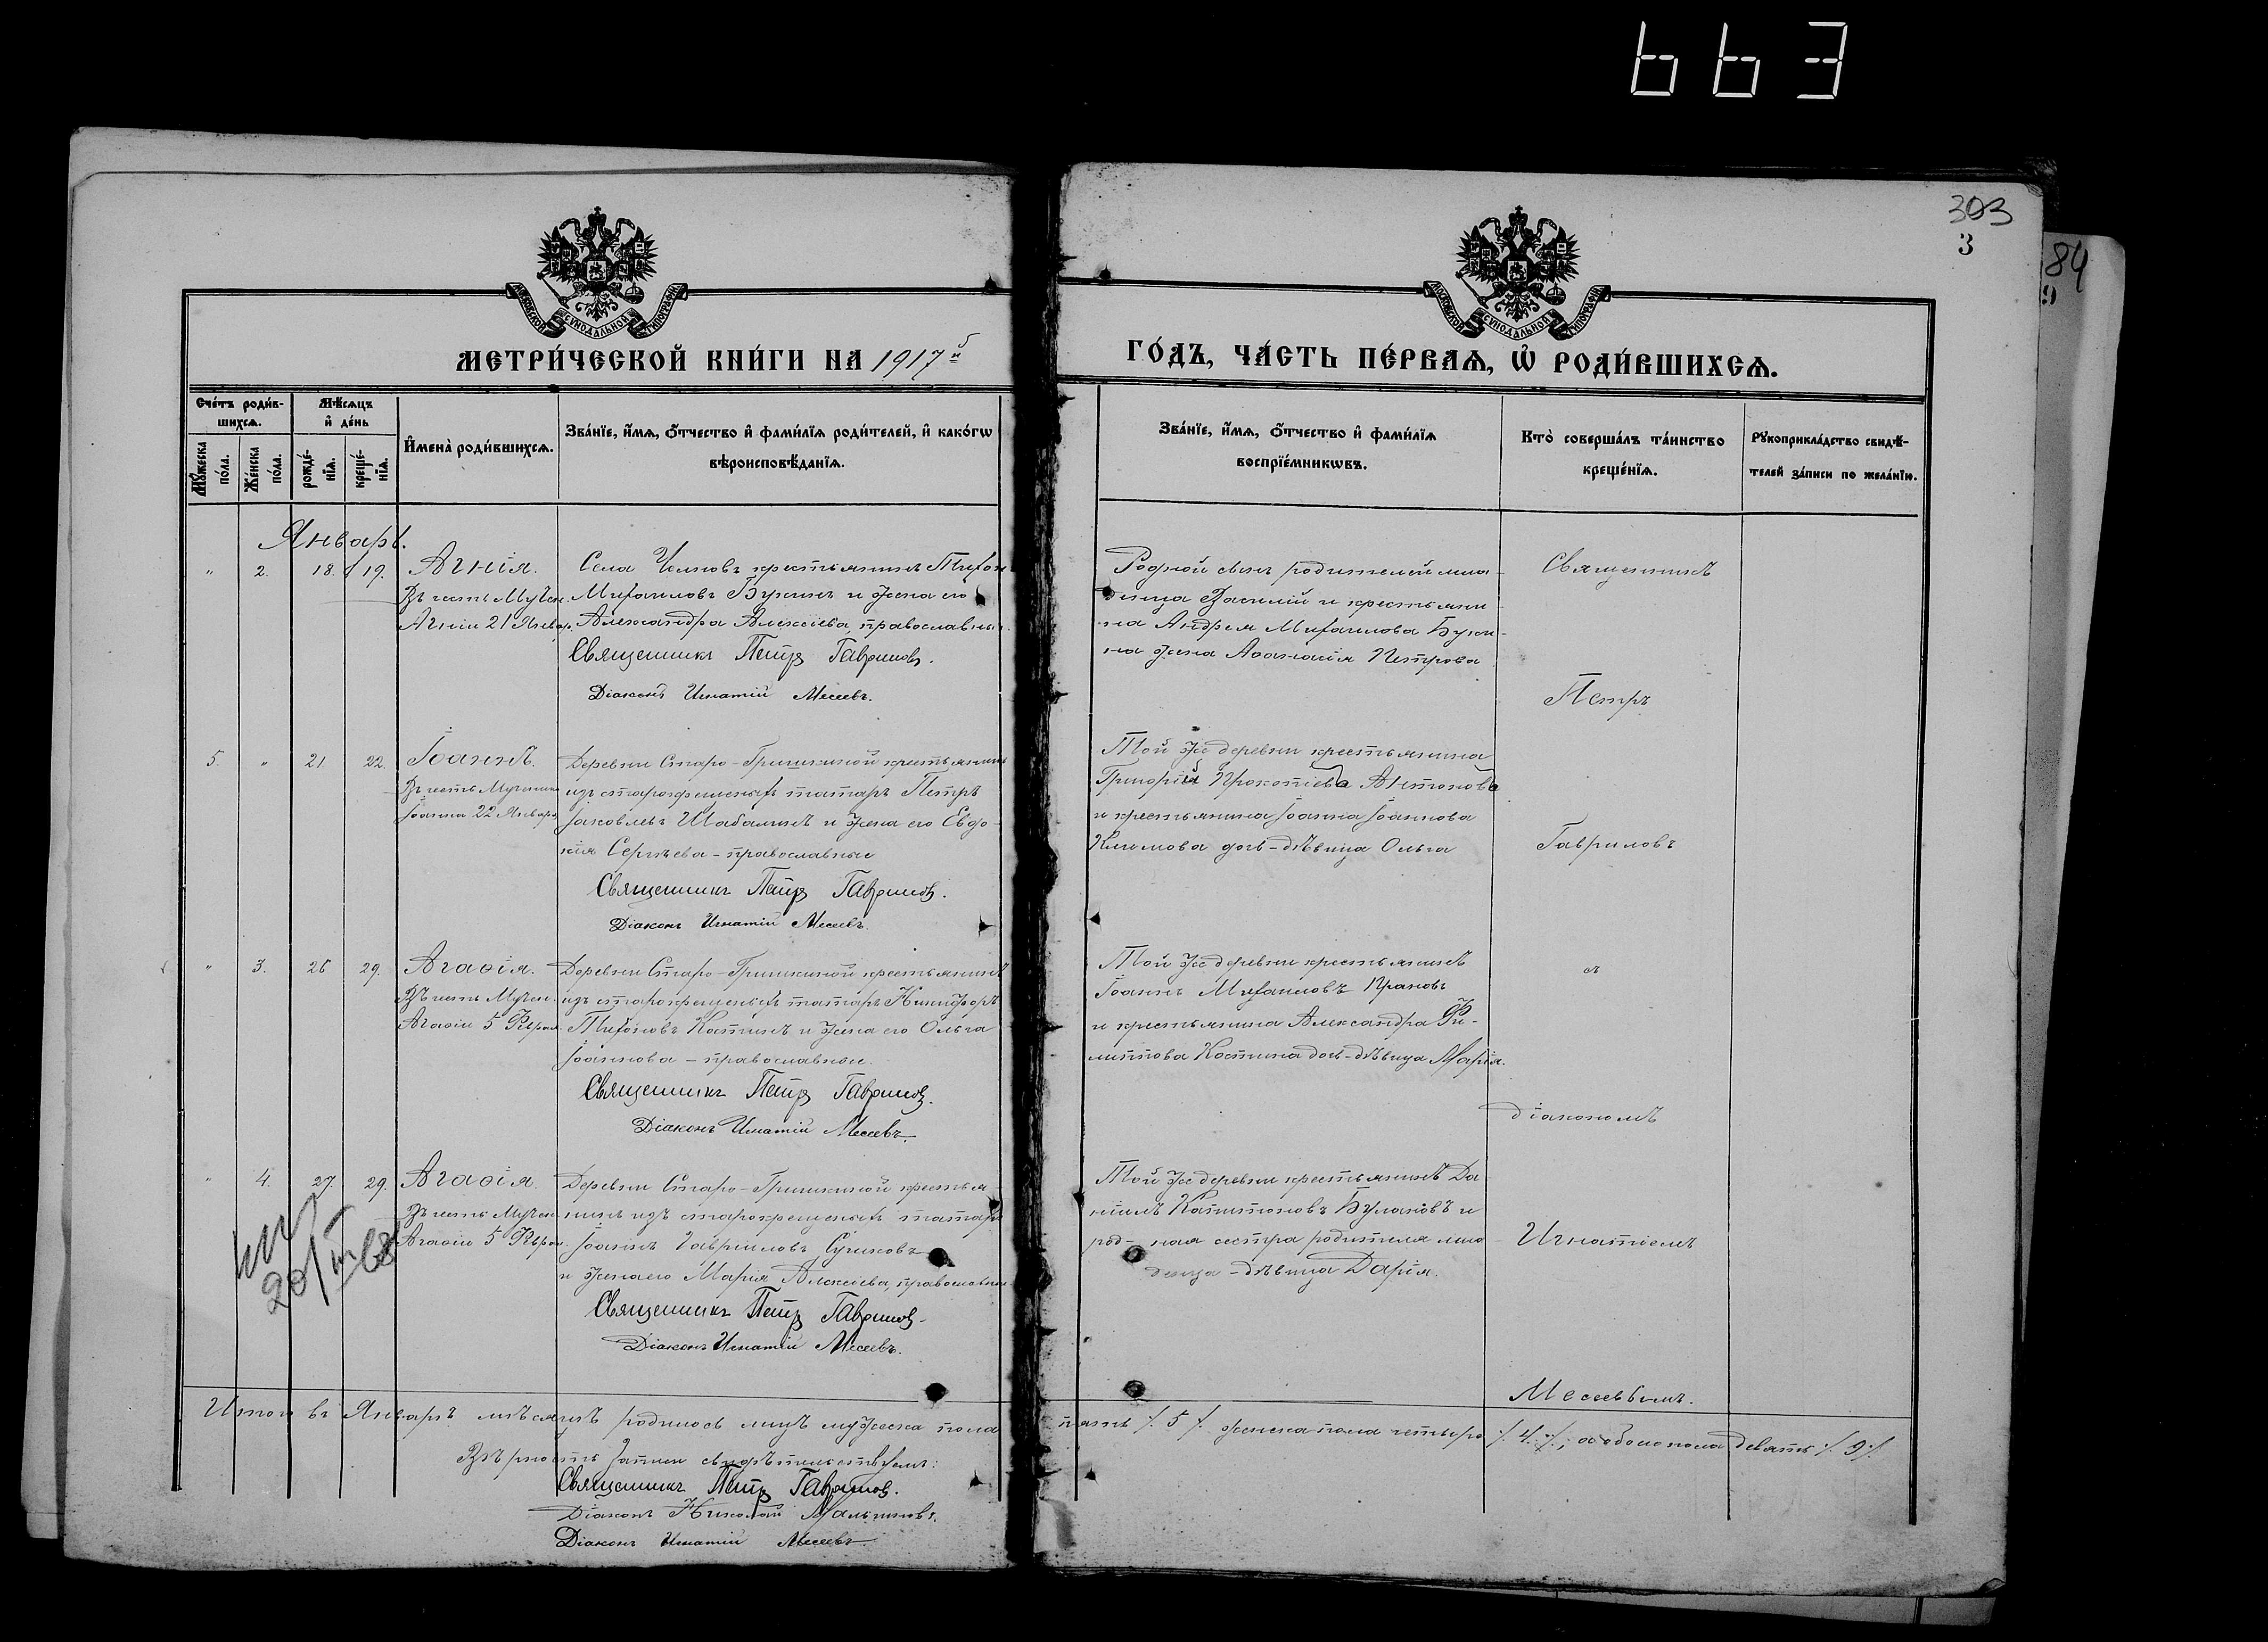 663
303
3
84
9
МОСКОВСКОЙ СѴНОДАЛЬНОЙ ТИПОГРАФІИ
МОСКОВСКОЙ СѴНОДАЛЬНОЙ ТИПОГРАФІИ
МЕТРИ́ЧЕСКОЙ КНИ́ГИ НА 1917й
ГО́ДЪ, ЧА́СТЬ ПЕ́РВАѦ, Ѽ РОДИ́ВШИХСѦ.
Сче́тъ роди́в-
шихсѧ.
Мꙋ́жеска по́ла.
Же́нска по́ла.
Мѣ́сѧцъ и҆ де́нь
рожде́-
нїѧ.
креще́-
нїѧ.
И҆мена̀ роди́вшихсѧ.
Зва́нїе, и҆́мѧ, ѻ҆́тчество и҆ фами́лїѧ роди́телей, и҆ како́гѡ
вѣроисповѣ́данїѧ.
Зва́нїе, и҆́мѧ, ѻ҆́тчество и҆ фами́лїѧ
воспрїе́мникѡвъ.
Кто̀ соверша́лъ та́инство
креще́нїѧ.
Рꙋкоприкла́дство свидѣ́-
телей за́писи по жела́нїю.
Январь.
" 2. 18. 19. Агнія.
Въ честь Мучен.
Агніи 21 Январ.
Села крестьянинъ Тихон
Михаиловъ Букинъ и жена его
Александра Алексіева, православные.
Священникъ Петръ Гавриловъ.
Діаконъ Игнатій Месеевъ.
Родной сынъ родителей мла-
денца Василій и крестьяни-
на Андрея Михаилова Буки-
на жена Аѳанасія Петрова
Священникъ
Петръ
5. " 21. 22. Іоаннъ.
Въ честь Мученика
Іоанна 22 Января
Деревни Старо-Гришкиной крестьянинъ
изъ старокрещеныхъ татаръ Петръ
Іаковлевъ Шабалинъ и жена его Евдо-
кія Сергѣева - православные
Священникъ Петръ Гавриловъ.
Діаконъ Игнатій Месеевъ.
Той же деревни крестьянина
Григорій Прокопіева Антонова
и крестьянина Іоанна Іоаннова
Климова дочь-дѣвица Ольга
Гавриловъ
" 3. 26 29. Агаѳія.
Въ честь Мучен.
Агаѳіи 5 Феврал.
Деревни Старо-Гришкиной крестьянинъ
изъ старокрещеныхъ татаръ Никифоръ
Тихоновъ Костинъ и жена его Ольга
Іоаннова - православные.
Священникъ Петръ Гавриловъ.
Діаконъ Игнатій Месеевъ.
Той же деревни крестьянинъ
Іоаннъ Михаиловъ
и крестьянина Александра Фи-
липпова Костина дочь-дѣвица Марія.
съ
діакономъ
" 4. 27. 29. Агаѳія.
Въ честь Мучен.
Агаѳіи 5 Феврал.
20/III 68
Деревни Старо-Гришкиной крестья-
нинъ изъ старокрещеныхъ татаръ
Іоаннъ Гавріиловъ Сучковъ
и жена его Марія Алексіева, православные
Священникъ Петръ Гавриловъ.
Діаконъ Игнатій Месеевъ.
Той же деревни крестьянинъ Да-
ніилъ Капитоновъ Булановъ и
род-ная сестра родителя мла-
денца - дѣвица Дарія.
Игнатіемъ
Месеевымъ.
Итого въ Январѣ мѣсяцѣ родилось лицъ мужеска пола
пять /. 5 /. женска пола четыре /. 4. /., обоего пола девять /. 9 /.
Вѣрность записи свидѣтельствуемъ:
Священникъ Петръ Гавриловъ.
Діаконъ Николай Мальчиковъ.
Діаконъ Игнатій Месеевъ